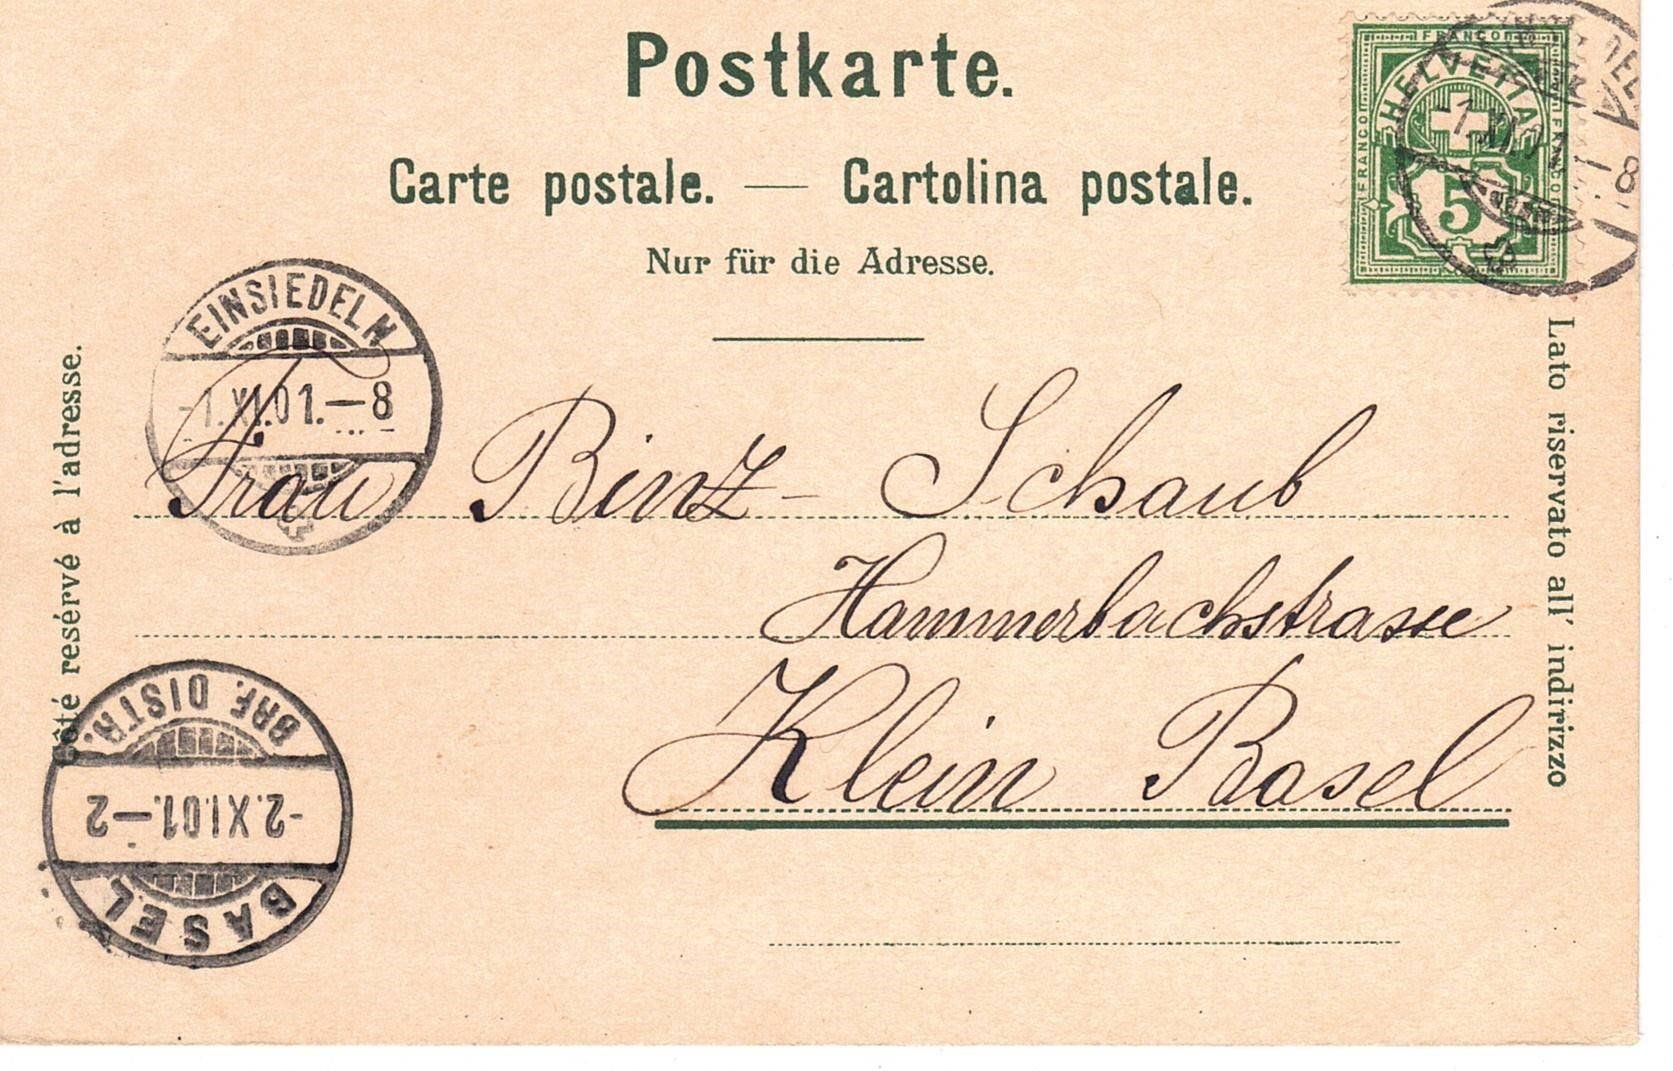 Postkarte.
Carte postale. — Cartolina postale.
Nur für die Adresse.
FRANCO
FRANCO
FRANCO
HELVETIA
5
-1.XI.01.-8
EINSIEDELN
-1.XI.01.-8
Côté resérvé à l'adresse.
Lato riservato all' indirizzo
Frau Binz- Schaub
Hammerbachstrasse
Klein Basel
BRF. DISTR.
-2.XI.01.-2
BASEL